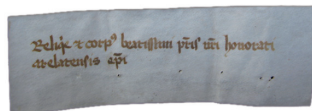 Reliq̃e et corpꝰ beatissimi p̃ris nr̃i honorati
arelatensis ep̃i